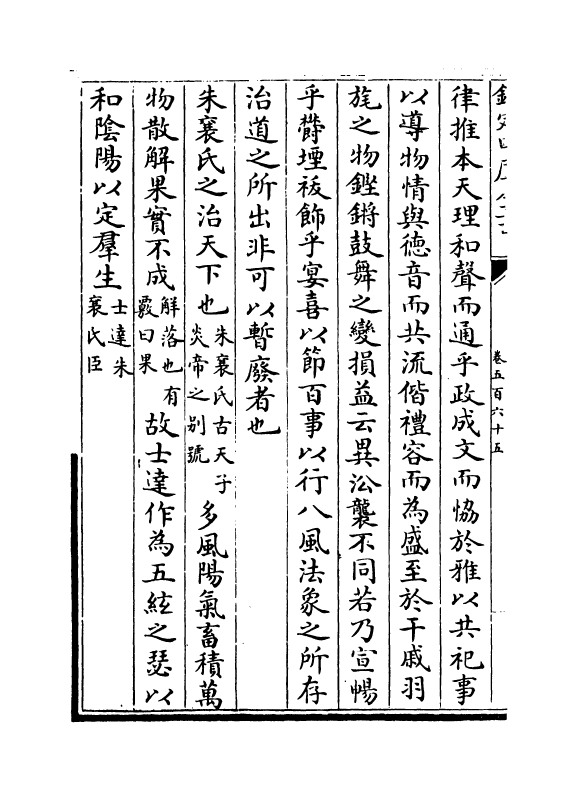 欽定四庫全書
卷五百六十五
律推本天理和聲而通乎政成文而恊於雅以共祀事
以導物情與徳音而共流偕禮容而為盛至於干戚羽
旄之物鏗鏘鼓舞之變損益云異㳂襲不同若乃宣暢
乎欝堙祓飾乎宴喜以節百事以行八風法象之所存
治道之所出非可以暫廢者也
朱襄氏之治天下也朱襄氏古天子炎帝之别號多風陽氣畜積萬
物散解果實不成解落也有覈曰果故士達作為五絃之瑟以
和陰陽以定羣生士達朱襄氏臣